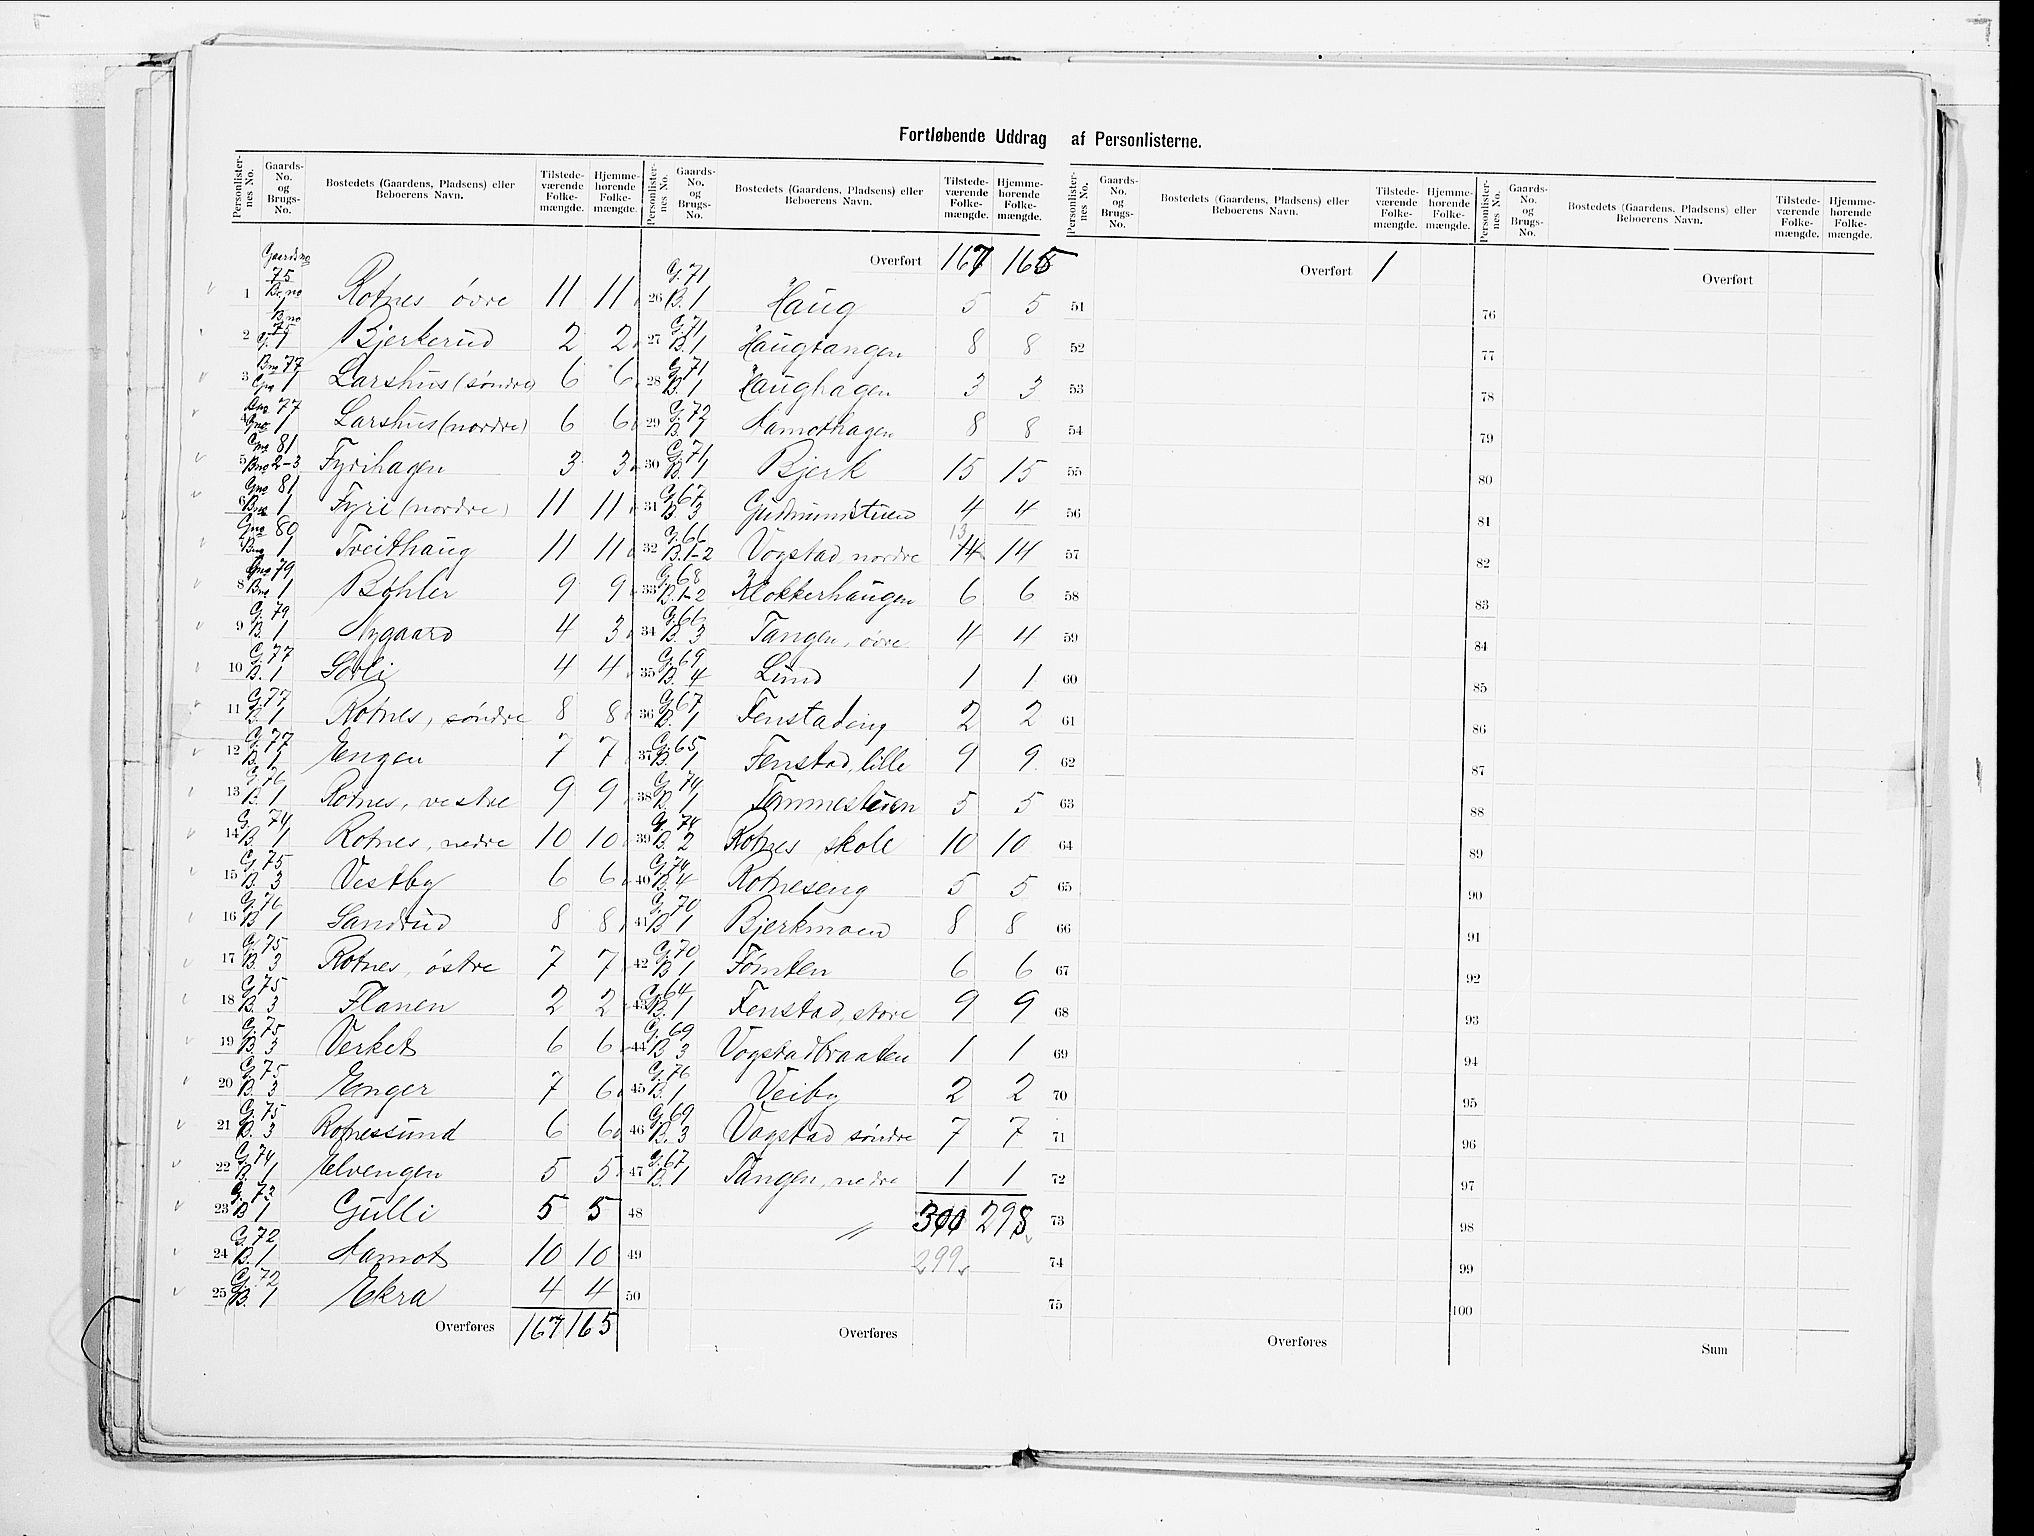 Fortløbende Uddrag af Personlisterne.
Personlister-nes No. Gaards-No. og Brugs-No. Bostedets (Gaardens, Pladsens) eller Beboerens Navn. Tilstede-værende Folke-mængde. Hjemme-hørende Folke-mængde.
Gaardsno 75 Br. no 1
1 Rotnes øvre 11 11
2 Bjerkerud 2 2
3 77 1 Larshus (søndre) 6 6
77 1 Larshus (nordre) 6 6
5 Gno 81 Bno 2-3 Fyrihagen 3 3
6 Gno 81 Bno 1 Fyri (nordre) 11 11
Gno 80 Bno 1 Tveithaug 11 11
8 Gno 79 Bno 1 Bøhler 9 9
9 G. 79 B. 1 Nygaard 4 3
10 G. 77 B. 1 Sørli 4 4
11 G. 77 B. 1 Rotnes, søndre 8 8
12 G. 77 B. 1 Engen 7 7
13 G. 76 B. 1 Rotnes, vestre 9 9
14 G. 74 B. 1 Rotnes, nedre 10 10
15 G. 75 B. 3 Vestby 6 6
16 G. 76 B. 1 Sandrud 8 8
17 G. 75 B. 3 Rotnes, østre 7 7
18 G. 75 B. 3 Flanen 2 2
19 G. 75 B. 3 Verket 6 6
20 G. 75 B. 3 Enger 7 6
21 G. 75 B. 3 Rotnessund 6 6
22 G. 74 B. 1 Elvengen 5 5
23 G. 72 B. 1 Gulli 5 5
24 G. 72 B. 1 Aamot 10 10
25 G. 72 B. 1 Ekra 4 4
Overføres 167 165
Personlister-nes No. Gaards-No. og Brugs-No. Bostedets (Gaardens, Pladsens) eller Beboerens Navn. Tilstede-værende Folke-mængde. Hjemme-hørende Folke-mængde.
Overført 167 165
26 G. 71 B. 1 Haug 5 5
27 G. 71 B. 1 Haugtangen 8 8
28 G. 71 B. 1 Haughagen 3 3
29 G. 72 B. 1 Aamothagen 8 8
30 G. 71 B. 1 Bjerk 15 15
31 G. 67 B. 3 Gudmundstuen 4 4
32 G. 66 B. 1-2 Vogstad, nordre 13 14 14
33 G. 68 B. 1-2 Klokkerhaugen 6 6
34 B. 3 Tangen, øvre 4 4
35 G. 69 B. 4 Lund 1 1
36 G. 67 B. 1 Fenstadeng 2 2
37 G. 65 B. 1 Fenstad, lille 9 9
38 G. 74 B. 1 Tømmestuen 5 5
39 G. 74 B. 2 Rotnes skole 10 10
40 G. 74 B. 4 Rotneseng 5 5
41 G. 70 B. 1 Bjerkmoen 8 8
42 G. 70 B. 1 Tømten 6 6
43 G. 64 B. 1 Fenstad, store 9 9
44 G. 69 B. 3 Vogstadbraaten 1 1
45 G. 76 B. 1 Veiby 2 2
46 G. 69 B. 3 Vogstad søndre 7 7
47 G. 67 B. 1 Tangen, nedre 1 1
48 300 298
49 299
50
Overføres
Personlister-nes No. Gaards-No. og Brugs-No. Bostedets (Gaardens, Pladsens) eller Beboerens Navn. Tilstede-værende Folke-mængde. Hjemme-hørende Folke-mængde.
Overført 1
51
52
53
54
55
56
57
58
59
60
61
62
63
64
65
66
67
68
69
70
71
72
73
74
75
Overføres
Personlister-nes No. Gaards-No. og Brugs-No. Bostedets (Gaardens, Pladsens) eller Beboerens Navn. Tilstede-værende Folke-mængde. Hjemme-hørende Folke-mængde.
Overført
76
77
78
79
80
81
82
83
84
85
86
87
88
89
90
91
92
93
94
95
96
97
98
99
100
Sum